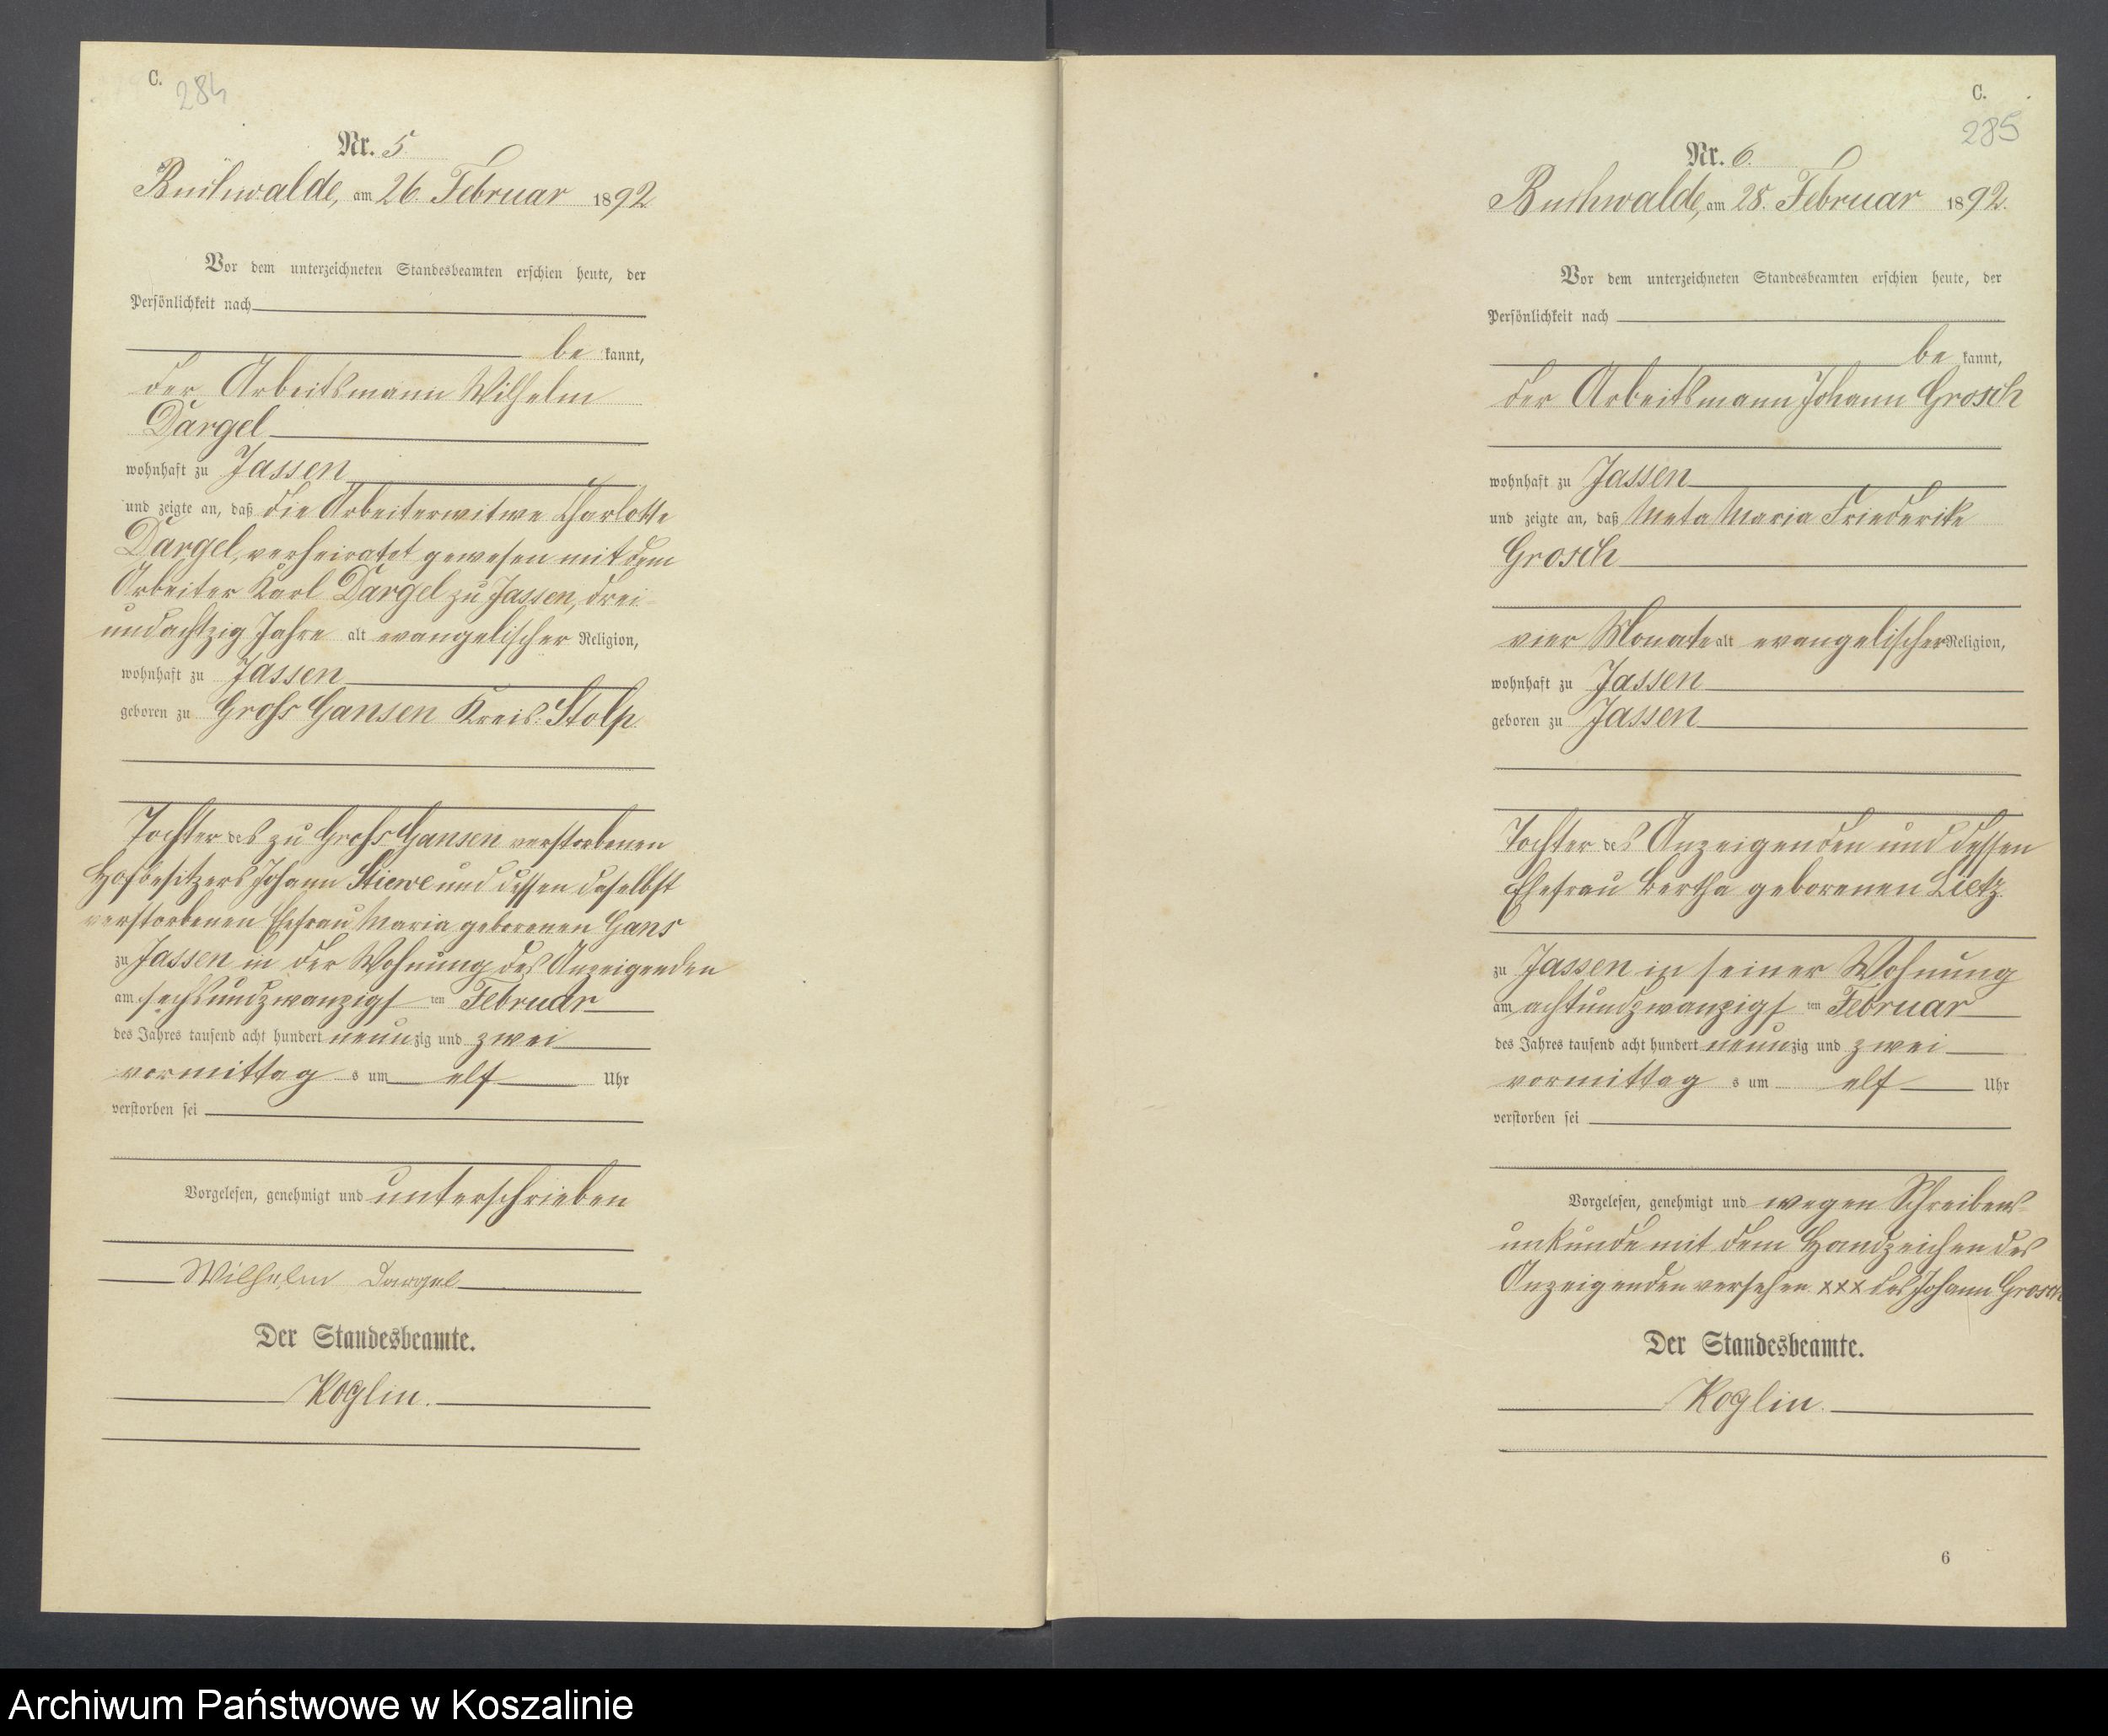 C.
284
Nr. 5.
Buchwalde, am 26. Februar 1892
Vor dem unterzeichneten Standesbeamten erschien heute, der
Persönlichkeit nach
be kannt,
der Arbeitsmann Wilhelm
Dargel
wohnhaft zu Jassen
und zeigte an, daß die Arbeiterwitwe Charlotte
Dargel, verheiratet gewesen mit dem
Arbeiter Karl Dargel zu Jassen, drei-
undachtzig Jahre alt evangelischer Religion,
wohnhaft zu Jassen
geboren zu Groß Gansen Kreis: Stolp
Tochter des zu Groß Gansen verstorbenen
Hofbesitzers Johann Stiewe und dessen daselbst
verstorbenen Ehefrau Maria geborenen Gans
zu Jassen in der Wohnung des Anzeigenden
am sechsundzwanzigsten Februar
des Jahres tausend acht hundert neunzig und zwei
vormittags um elf Uhr
verstorben sei
Vorgelesen, genehmigt und unterschrieben
Wilhelm Dargel
Der Standesbeamte.
Koglin.
C.
285
Nr. 6.
Buchwalde, am 28. Februar 1892.
Vor dem unterzeichneten Standesbeamten erschien heute, der
Persönlichkeit nach
be kannt,
der Arbeitsmann Johann Grosch
wohnhaft zu Jassen
und zeigte an, daß Meta Maria Friederike
Grosch
vier Monate alt evangelischer Religion,
wohnhaft zu Jassen
geboren zu Jassen
Tochter des Anzeigenden und dessen
Ehefrau Bertha geborenen Lietz
zu Jassen in seiner Wohnung
am achtundzwanzigsten Februar
des Jahres tausend acht hundert neunzig und zwei
vormittags um elf Uhr
verstorben sei
Vorgelesen, genehmigt und wegen Schreibens-
unkunde mit dem Handzeichen des
Anzeigenden versehen xxx des Johann Grosch
Der Standesbeamte.
Koglin.
6
Archiwum Państwowe w Koszalinie